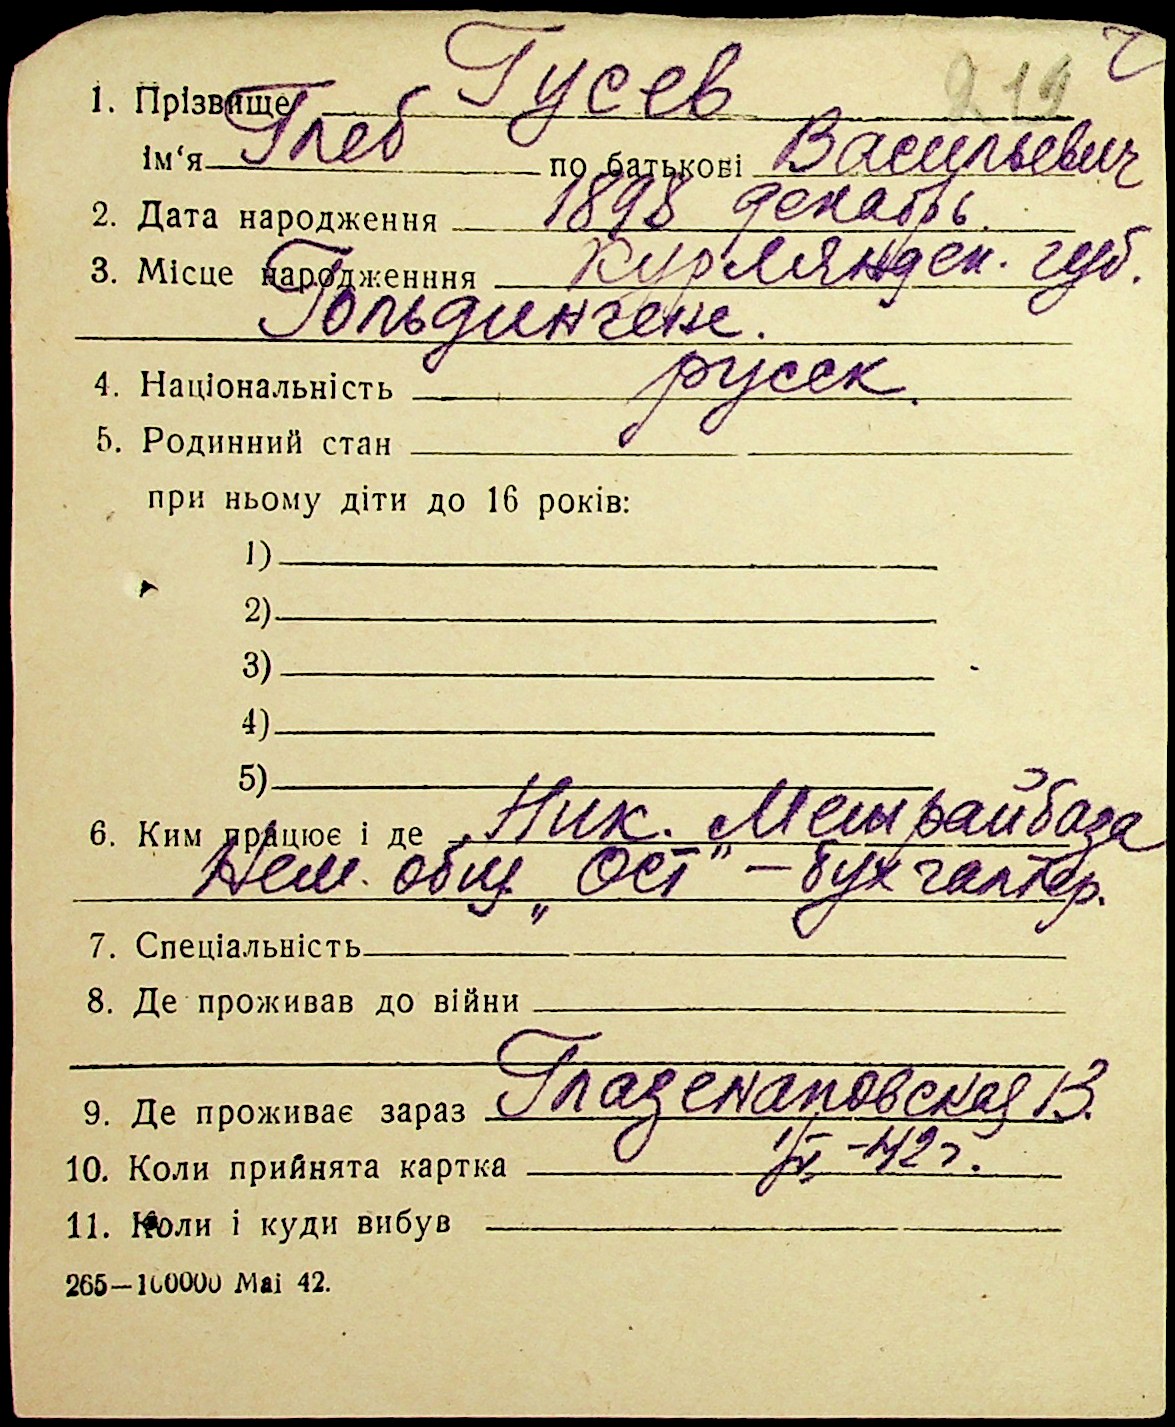 219
1. Прізвище Гусев
ім‘я Глеб по батькові Васильевич
2. Дата народження 1898 декабрь
3. Місце народженння Курляндск. губ.
Гольдинген.
4. Національність русск.
5. Родинний стан
при ньому діти до 16 років:
1)
2)
3)
4)
5)
6. Ким працює і де Ник. Межрайбаза
Нем. общ. „Ост" – бухгалтер.
7. Спеціальність
8. Де проживав до війни
9. Де проживає зараз 13.
10. Коли прийнята картка 42 г.
11. Коли і куди вибув
265—100000 Mai 42.